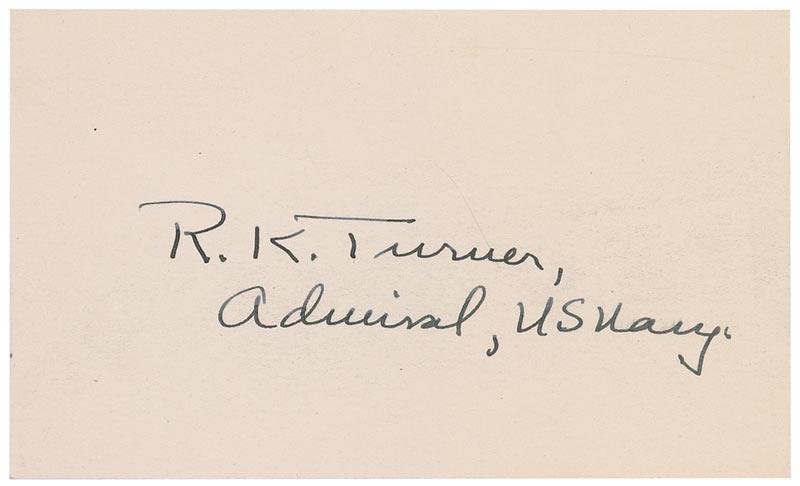 R. K. Turner,
Admiral, US Navy.